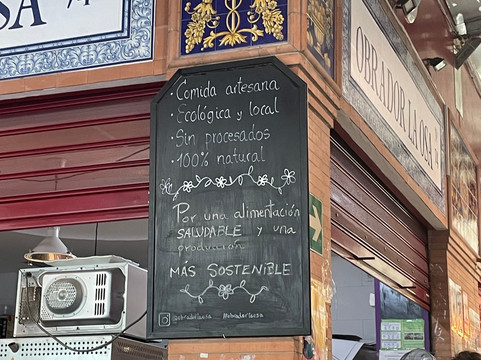 OBRADOR LA OSA
· Comida artesana
· Ecológica y local
· Sin procesados
· 100% natural
Por una alimentación
SALUDABLE y una
producción
MÁS SOSTENIBLE
@obradorlaosa #obradorlaosa